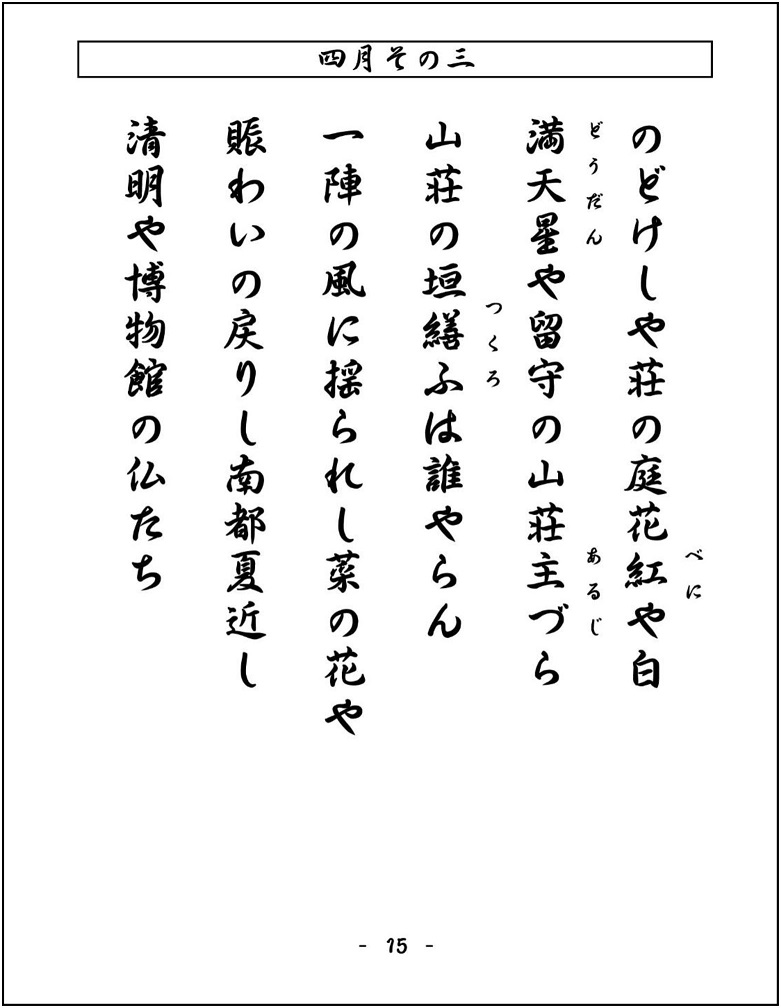 四月その三
のどけしや荘の庭花紅や白
べに
満天星や留守の山荘主づら
どうだん
あるじ
山荘の垣繕ふは誰やらん
つくろ
一陣の風に揺られし菜の花や
賑わいの戻りし南都夏近し
清明や博物館の仏たち
- 15 -